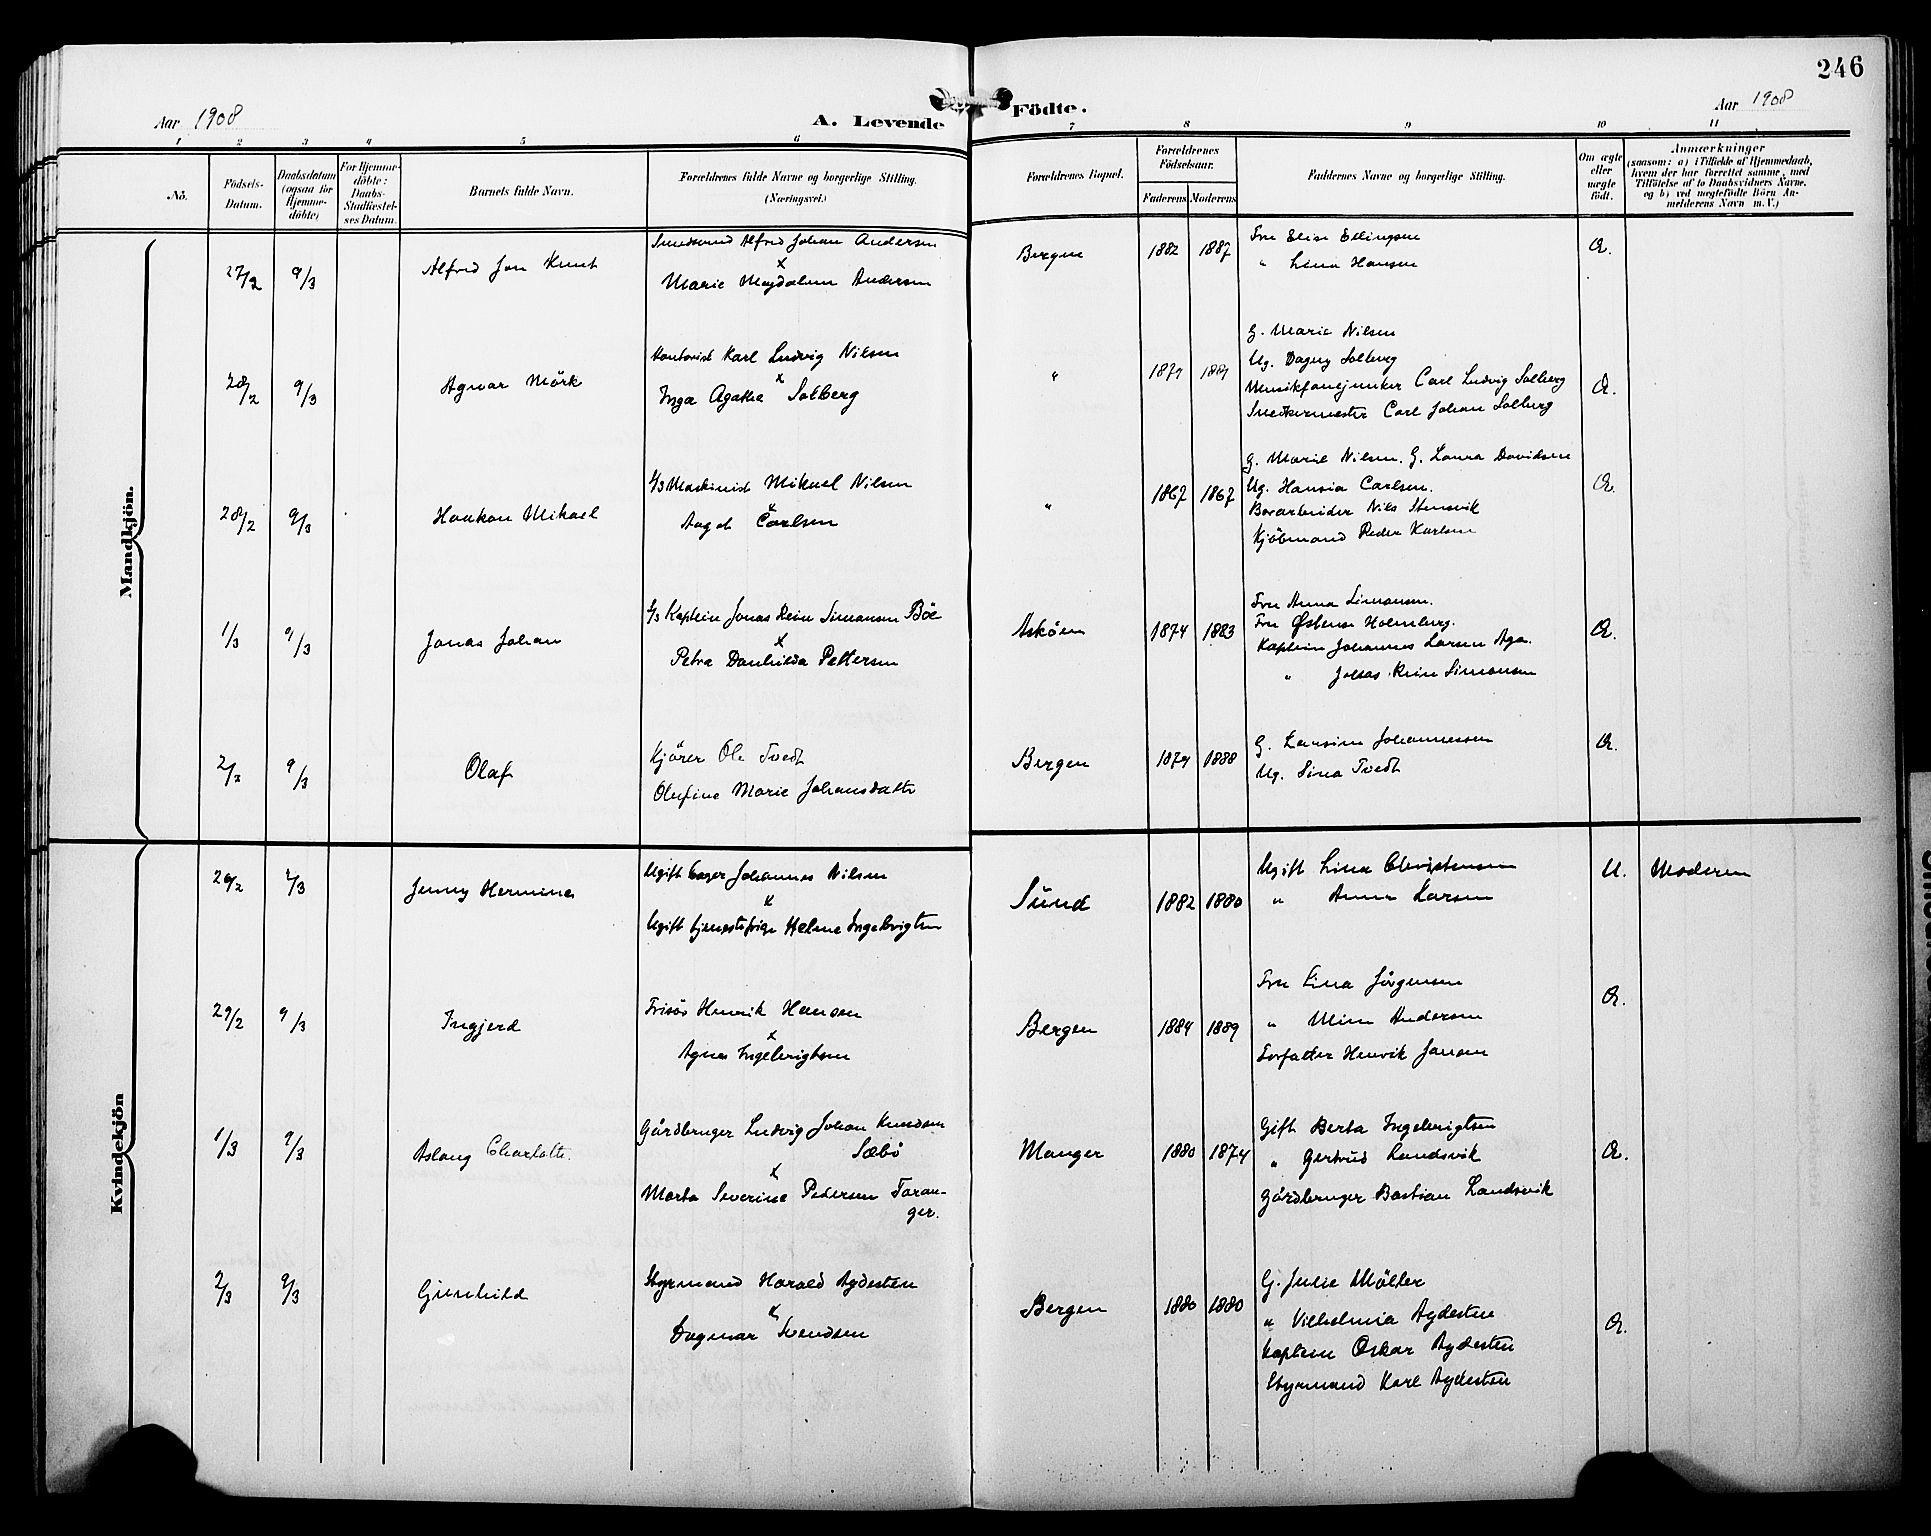 246
Aar 1908
A. Levende Födte.
Aar 1908
1 2 3 4 5 6 7 8 9 10 11
No.
Födsels-Datum.
Daabsdatum (ogsaa for Hjemme-döbte)
For Hjemme-döbte: Daabs-Stadfæstel-ses Datum.
Barnets fulde Navn.
Forældrenes fulde Navne og borgerlige Stilling. (Næringsvei.)
Forældrenes Bopæl.
Forældrenes Födselsaar.
Faderens Moderens
Faddernes Navne og borgerlige Stilling.
Om ægte eller uægte födt.
Anmærkninger
(saasom: a) i Tilfælde af Hjemmedaab, hvem der har forrettet samme, med Tilföielse af to Daabsvidners Navne, og b) ved uegtefödte Börn An-melderens Navn m. V.)
Mandkjön.
27/2 9/3 Alfred Jon Knut
Alfred Johan Andersen
x
Marie Magdalene Andersen
Bergen 1882 1887
Fru Elise Ellingsen
" Lina Hansen
Æ.
28/2 9/3 Agnar Mörk
Kontorist Karl Ludvig Nilsen
x
Inga Agathe Solberg
"
G. Marie Nilsen
Ug. Dagny Solberg
Musikfanejunker Carl Ludvig Solberg
Snedkermester Carl Johan Solberg
Æ.
28/2 9/3 Haakon Mikael
Maskinist Mikael Nilsen
x
Carlsen
" 1867 1867
G. Marie Nilsen. G. Laura Davidsen
Ug. Hansia Carlsen.
Nils Stensvik
Kjöbmand Peder Karlsen
Æ.
1/3 9/3 Jonas Johan
Kaptein Jonas Rein Simonsen Böe
x
Petra Danhilda Pettersen
Askøen 1874 1883
Fru Anna Simonsen.
Fru Østense Holmberg.
Kaptein Johannes Larsen Aga.
" Rein Simonsen
Æ.
2/3 9/3 Olaf
Kjörer Ole Tvedt
Olufine Marie Johansdatter
Bergen 1874 1888
G. Larsine Johannessen
Ug. Sina Tvedt
Æ.
Kvindekjön
9/3 Jenny Hermine
Ugift Johannes Nilsen
x
Ugift tjenestepige Helene Ingebrigtsen
Sund 1882 1880
Ugift Lina Christensen
" Anna Larsen
U. Moderen
29/2 9/3 Ingjerd
Frisör Henrik Hansen
x
Agnes Ingebrigtsen
Bergen 1884 1889
Fru Lina Jörgensen
" Mina Andersen
Henrik Jansen
Æ.
1/3 9/3 Aslaug Charlotte.
Gårdbruger Ludvig Johan Knudsen
Sæbö
x
Marta Severine Pedersen Taran-
ger.
Manger 1880 1874
Gift Berta Ingebrigtsen
" Gertrud Landsvik
Gårdbruger Bastian Landsvik
Æ.
2/3 9/3 Gunhild
Styrmand Harald Aydesten
x
Dagmar Svendsen
Bergen 1880 1880
G. Julie Möller
" Vilhelmia Aydesten
Kaptein Oskar Aydesten
Styrmand Karl Aydesten
Æ.